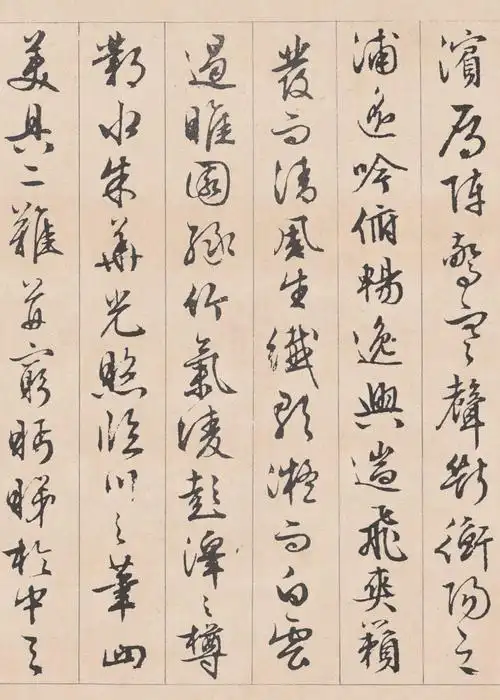 濱鴈陣驚寒聲斷衡陽之
浦遥吟俯暢逸興遄飛爽籟
發而清風生纖歌凝而白雲
遏睢園綠竹氣凌彭澤之樽
鄴水朱華光照臨川之筆四
美具二難并窮眄睇於中天